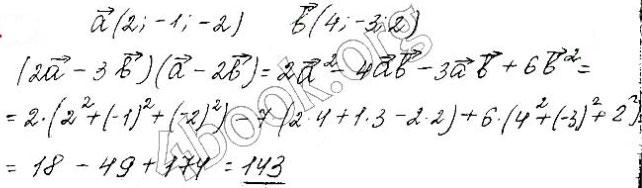 a⃗(2; -1; -2)   b⃗(4; -3; 2)
(2a⃗ - 3b⃗)(a⃗ - 2b⃗) = 2a⃗² - 4a⃗b⃗ - 3a⃗b⃗ + 6b⃗² =
= 2·(2² + (-1)² + (-2)²) - 7(2·4 + 1·3 - 2·2) + 6·(4² + (-3)² + 2²)
= 18 - 49 + 174 = 143
4book.org